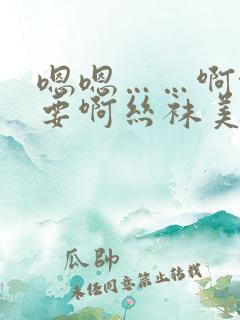 嗯嗯……啊
要啊丝袜美
瓜帥
未经同意禁止转载